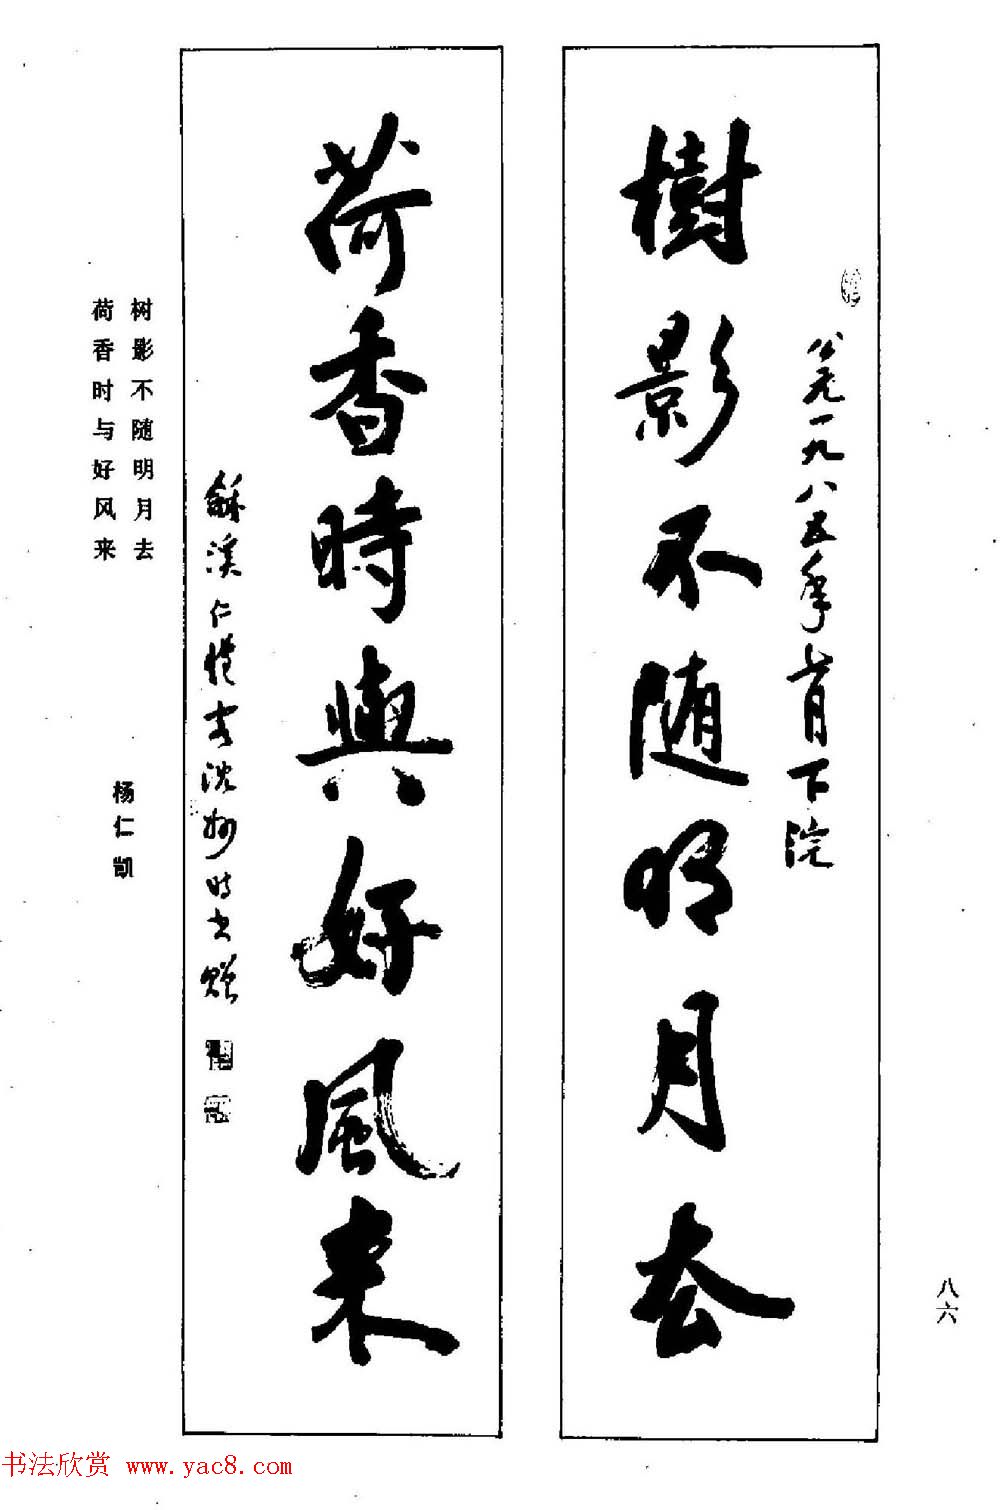 公元一九八五年七月下浣
樹影不随明月去
荷香時與好風来
龢溪仁愷客沈州時出贈
树影不随明月去
荷香时与好风来
杨仁凯
八六
书法欣赏 www.yac8.com